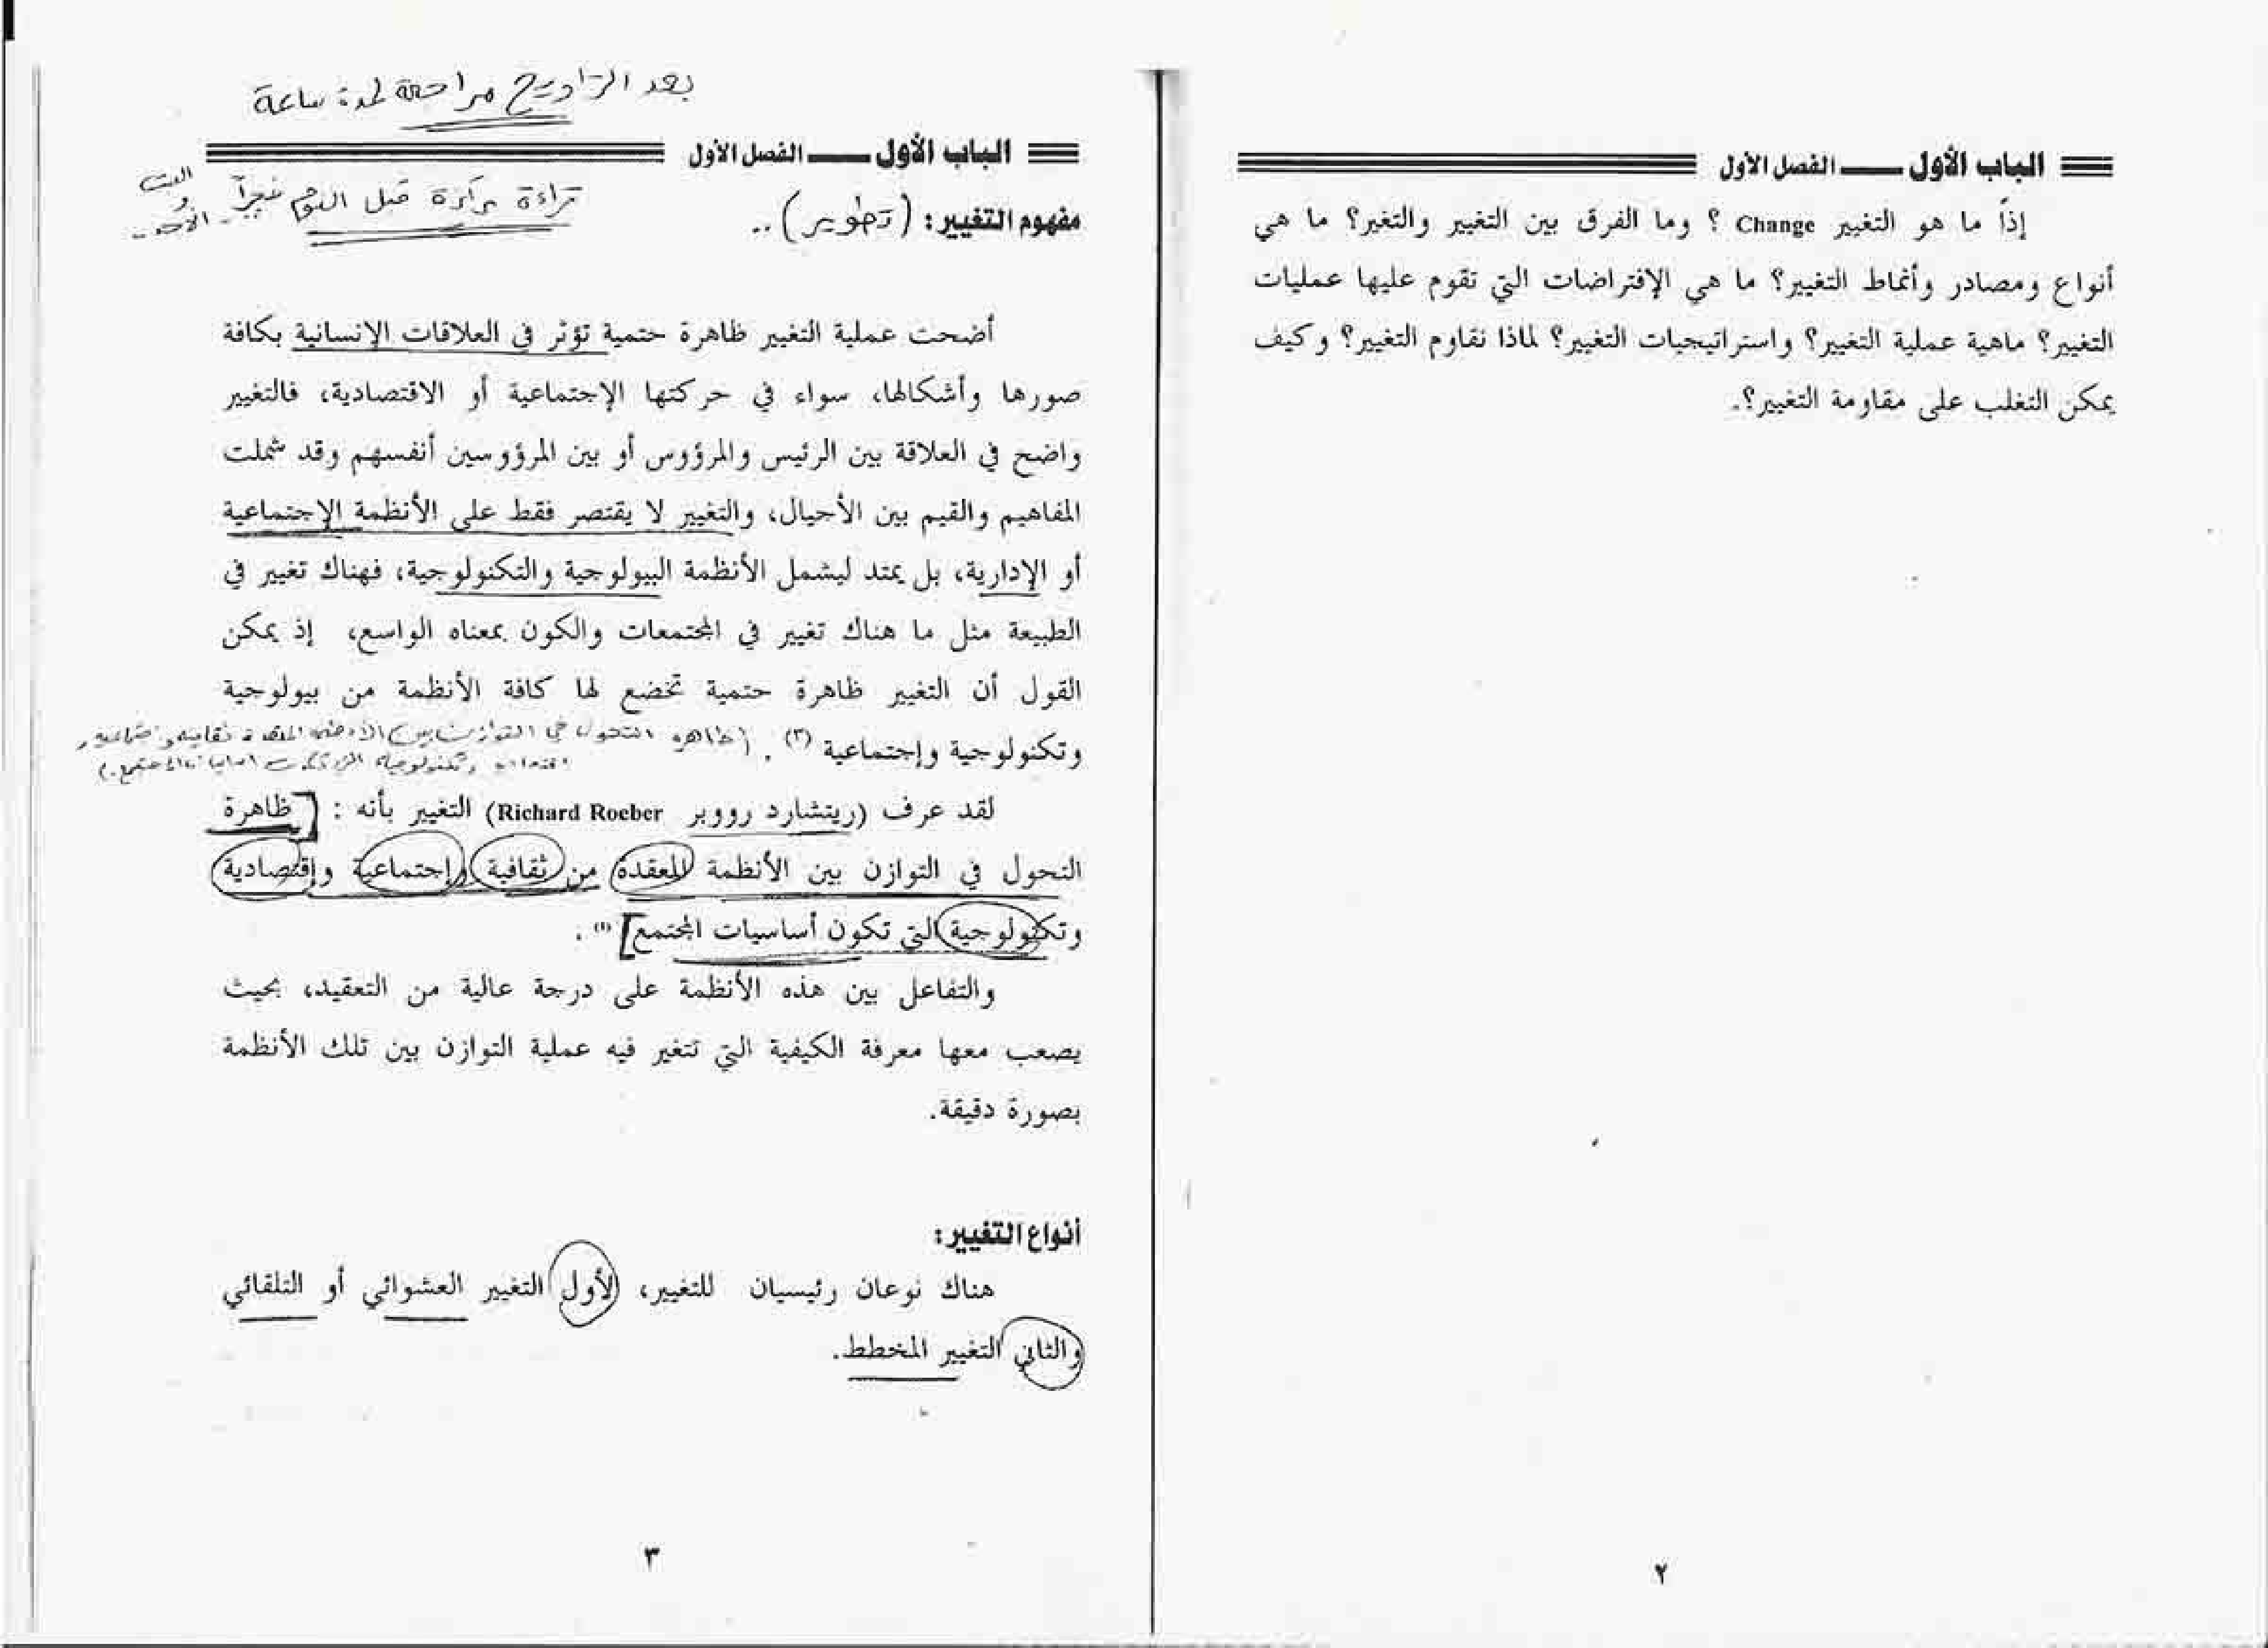 الباب الأول ـــــ الفصل الأول
إذاً ما هو التغيير Change ؟ وما الفرق بين التغيير والتغير؟ ما هي
أنواع ومصادر وأنماط التغيير؟ ما هي الإفتراضات التي تقوم عليها عمليات
التغيير؟ ماهية عملية التغيير؟ واستراتيجيات التغيير؟ لماذا نقاوم التغيير؟ وكيف
يمكن التغلب على مقاومة التغيير؟.
٢
بعد التراويح مراجعة لمدة ساعة
الباب الأول ـــــ الفصل الأول
قراءة مركزة قبل النوم فجراً
السبت
و
الأحد
مفهوم التغيير: (تطوير)..
أضحت عملية التغيير ظاهرة حتمية تؤثر في العلاقات الإنسانية بكافة
صورها وأشكالها، سواء في حركتها الإجتماعية أو الاقتصادية، فالتغيير
واضح في العلاقة بين الرئيس والمرؤوس أو بين المرؤوسين أنفسهم وقد شملت
المفاهيم والقيم بين الأجيال، والتغيير لا يقتصر فقط على الأنظمة الإجتماعية
أو الإدارية، بل يمتد ليشمل الأنظمة البيولوجية والتكنولوجية، فهناك تغيير في
الطبيعة مثل ما هناك تغيير في المجتمعات والكون بمعناه الواسع، إذ يمكن
القول أن التغيير ظاهرة حتمية تخضع لها كافة الأنظمة من بيولوجية
وتكنولوجية وإجتماعية (٣) . (ظاهره التحول في التوازن بين الأنظمه المعقده ثقافيه واجتماعيه و
اقتصاديه وتكنولوجيه التي تكون اساسيات المجتمع.)
لقد عرف (ريتشارد رووبر Richard Roeber) التغيير بأنه : [ظاهرة
التحول في التوازن بين الأنظمة المعقدة من ثقافية وإجتماعية وإقتصادية
وتكنولوجية التي تكون أساسيات المجتمع] (١) .
والتفاعل بين هذه الأنظمة على درجة عالية من التعقيد، بحيث
يصعب معها معرفة الكيفية التي تتغير فيه عملية التوازن بين تلك الأنظمة
بصورة دقيقة.
أنواع التغيير:
هناك نوعان رئيسيان للتغيير، الأول التغيير العشوائي أو التلقائي
والثاني التغيير المخطط.
٣